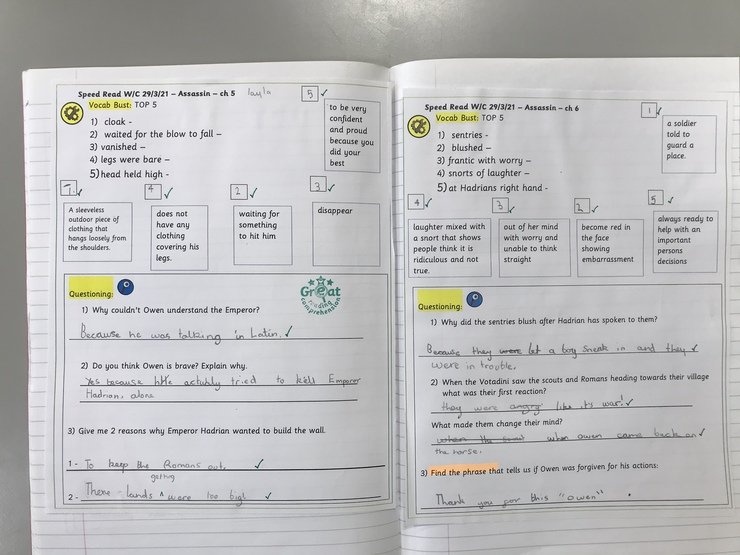 Speed Read W/C 29/3/21 – Assassin – ch 5 layla
Vocab Bust: TOP 5
1) cloak -
2) waited for the blow to fall –
3) vanished –
4) legs were bare –
5) head held high -
5
to be very
confident
and proud
because you
did your
best
1.
A sleeveless
outdoor piece of
clothing that
hangs loosely from
the shoulders.
4
does not
have any
clothing
covering his
legs.
2
waiting for
something
to hit him
3
disappear
Questioning:
Great
reading
comprehension
1) Why couldn't Owen understand the Emperor?
Because he was talking in Latin.
2) Do you think Owen is brave? Explain why.
Yes because he actually tried to kill Emperor
Hadrian, alone
3) Give me 2 reasons why Emperor Hadrian wanted to build the wall.
1 - To keep the Romans out.
getting
2 - There lands ^ were too big!
Speed Read W/C 29/3/21 – Assassin – ch 6
Vocab Bust: TOP 5
1) sentries -
2) blushed –
3) frantic with worry –
4) snorts of laughter –
5) at Hadrians right hand -
1
a soldier
told to
guard a
place.
4
laughter mixed with
a snort that shows
people think it is
ridiculous and not
true.
3
out of her mind
with worry and
unable to think
straight
2
become red in
the face
showing
embarrassment
5
always ready to
help with an
important
persons
decisions
Questioning:
1) Why did the sentries blush after Hadrian has spoken to them?
Because they were let a boy sneak in and they
were in trouble.
2) When the Votadini saw the scouts and Romans heading towards their village
what was their first reaction?
they were angry like its war!
What made them change their mind?
when the scout when owen came back on
the horse.
3) Find the phrase that tells us if Owen was forgiven for his actions:
Thank you for this "owen"